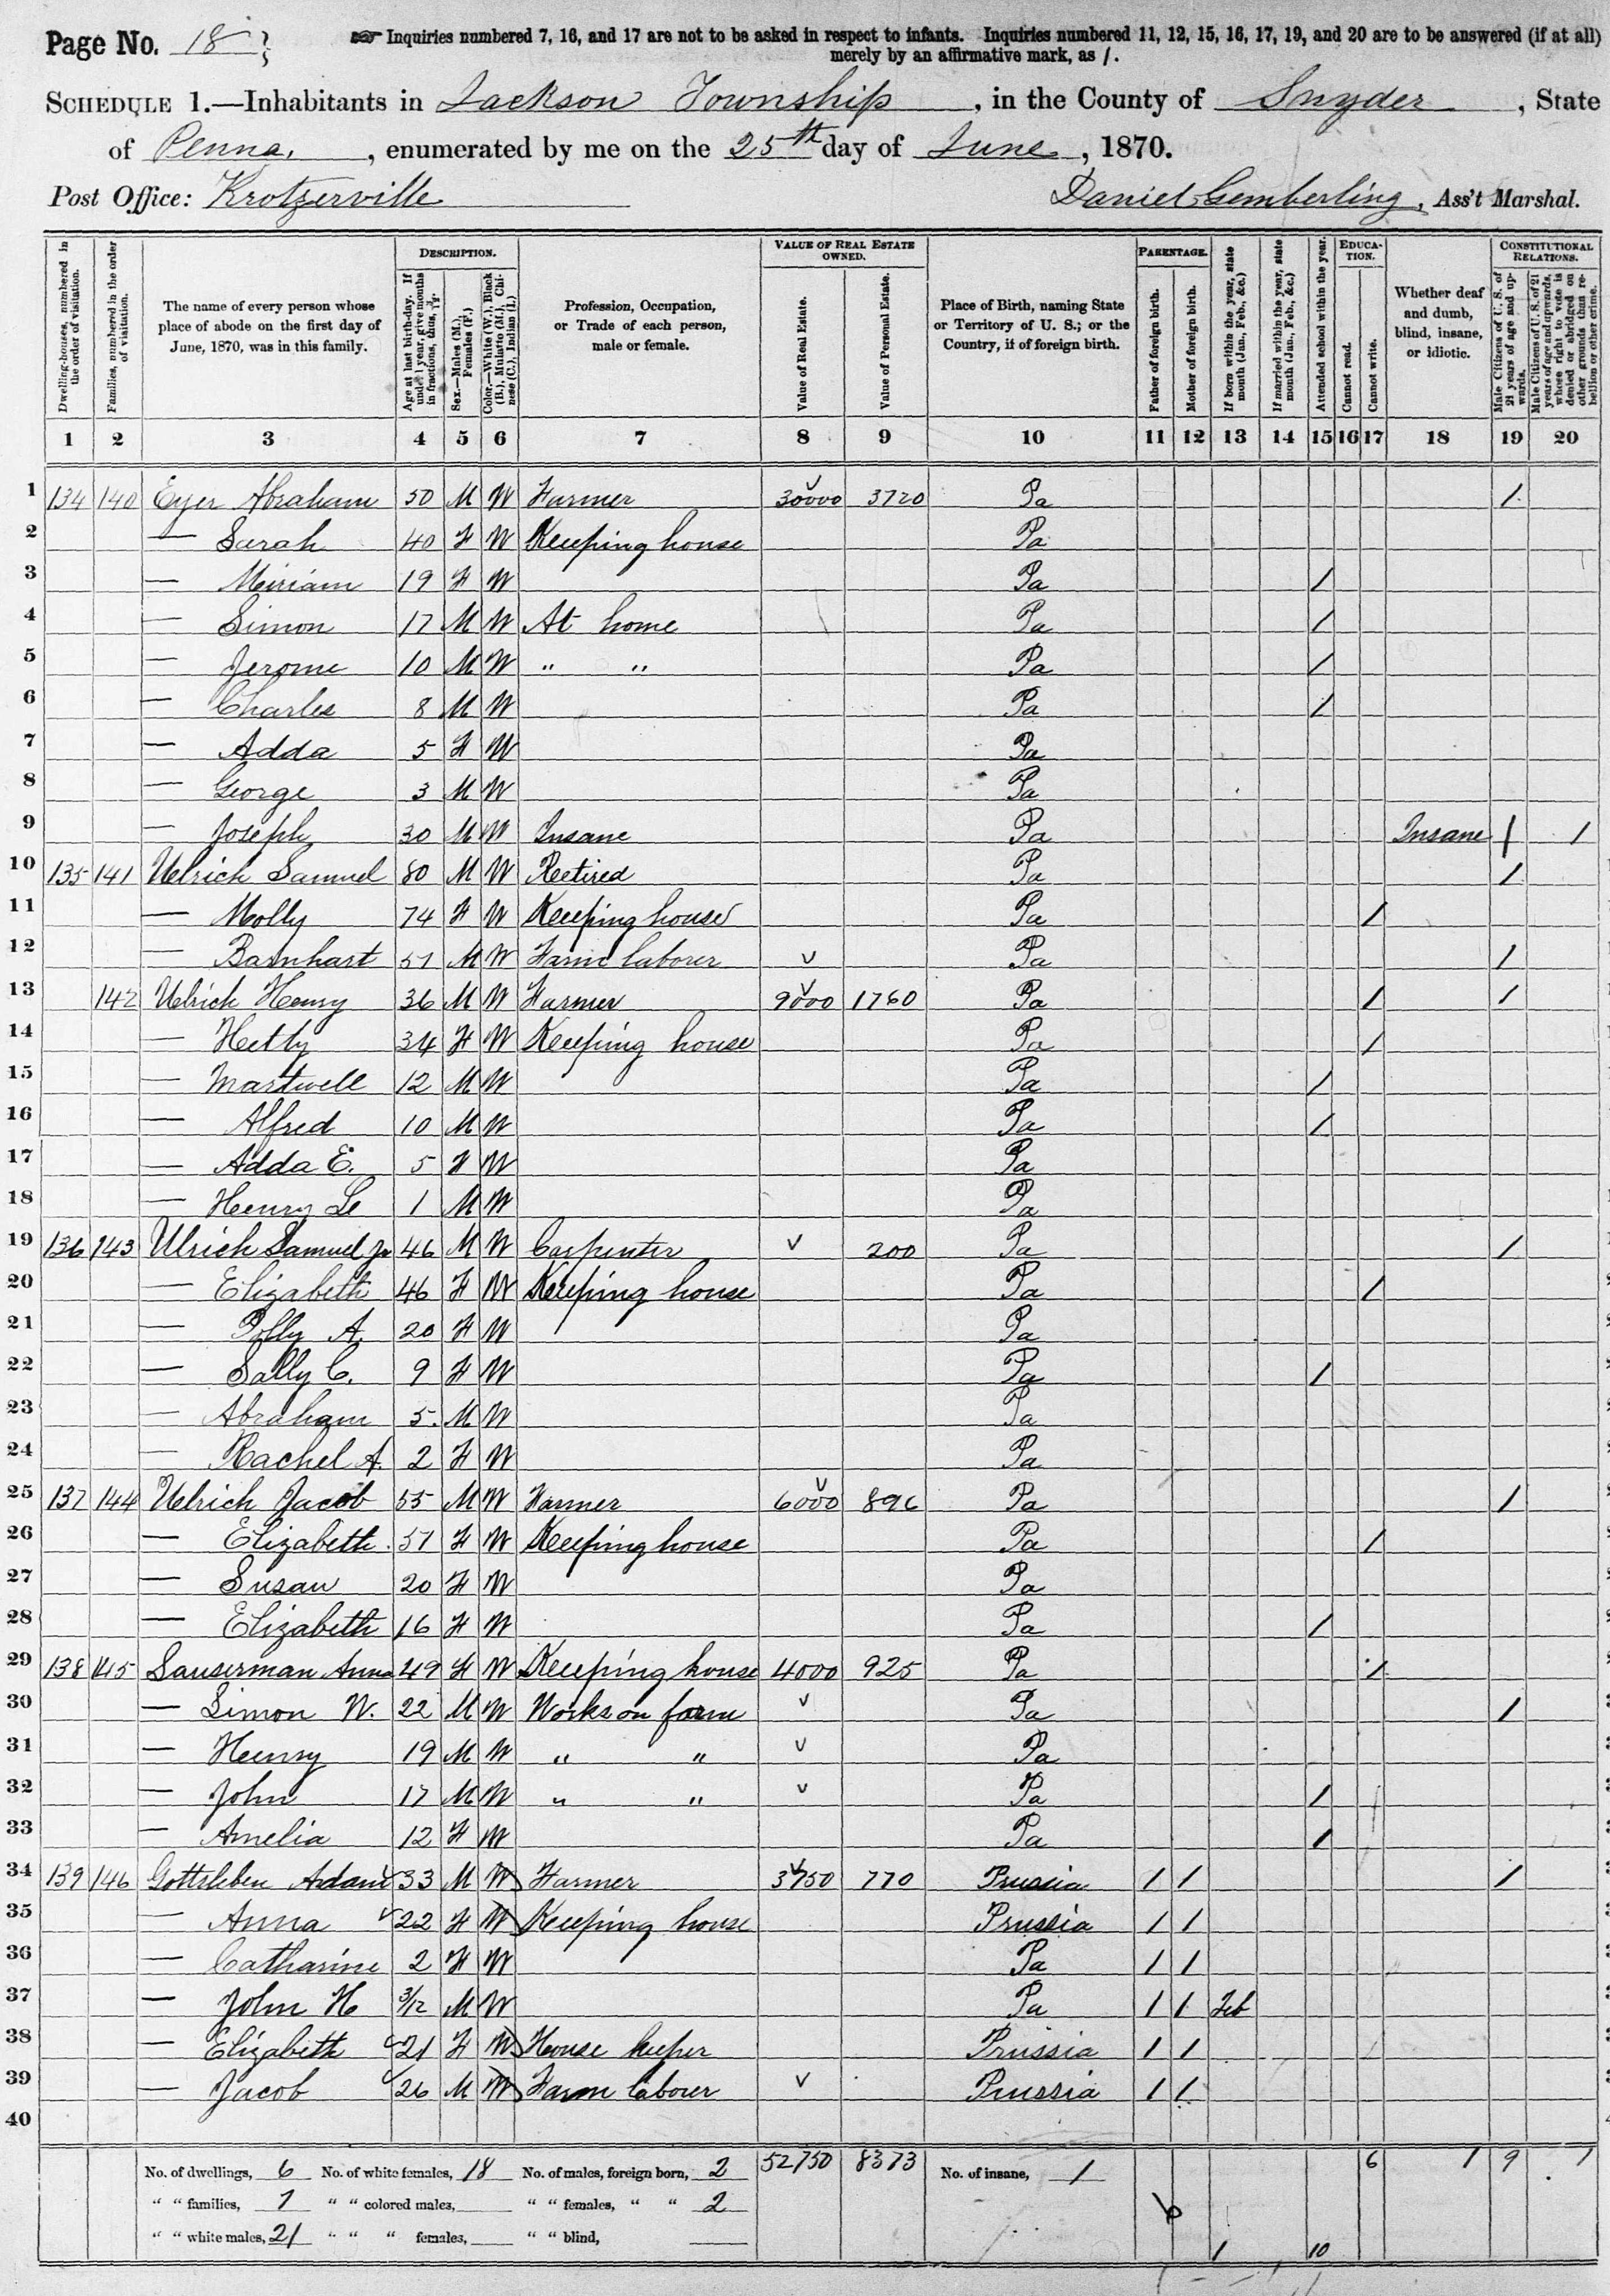 Page No. 18
☞ Inquiries numbered 7, 16, and 17 are not to be asked in respect to infants. Inquiries numbered 11, 12, 15, 16, 17, 19, and 20 are to be answered (if at all)
merely by an affirmative mark, as /.
SCHEDULE 1.—Inhabitants in Jackson Township, in the County of Snyder, State
of Penna., enumerated by me on the 25th day of June, 1870.
Post Office: Krotzerville Daniel Gemberling, Ass't Marshal.
Dwelling-houses, numbered in the order of visitation.
Families, numbered in the order of visitation.
The name of every person whose place of abode on the first day of June, 1870, was in this family.
DESCRIPTION.
Age at last birth-day. If under 1 year, give months in fractions, thus, 3/12.
Sex.—Males (M.), Females (F.)
Color.—White (W.), Black (B.), Mulatto (M.), Chinese (C.), Indian (I.)
Profession, Occupation, or Trade of each person, male or female.
VALUE OF REAL ESTATE OWNED.
Value of Real Estate.
Value of Personal Estate.
Place of Birth, naming State or Territory of U. S.; or the Country, if of foreign birth.
PARENTAGE.
Father of foreign birth.
Mother of foreign birth.
If born within the year, state month (Jan., Feb., &c.)
If married within the year, state month (Jan., Feb., &c.)
EDUCATION.
Attended school within the year.
Cannot read.
Cannot write.
Whether deaf and dumb, blind, insane, or idiotic.
CONSTITUTIONAL RELATIONS.
Male Citizens of U. S. of 21 years of age and upwards.
Male Citizens of U. S. of 21 years of age and upwards, whose right to vote is denied or abridged on other grounds than rebellion or other crime.
1 2 3 4 5 6 7 8 9 10 11 12 13 14 15 16 17 18 19 20
1 134 140 Eyer Abraham 50 M W Farmer 30000 3720 Pa /
2 — Sarah 40 F W Keeping house Pa
3 — Miriam 19 F W Pa /
4 — Simon 17 M W At home Pa /
5 — Jerome 10 M W " " Pa /
6 — Charles 8 M W Pa /
7 — Adda 5 F W Pa
8 — George 3 M W Pa
9 — Joseph 30 M W Insane Pa Insane / 1
10 135 141 Ulrich Samuel 80 M W Retired Pa /
11 — Molly 74 F W Keeping house Pa /
12 — Barnhart 51 M W Farm laborer Pa /
13 142 Ulrich Henry 36 M W Farmer 9000 1760 Pa / /
14 — Hetty 34 F W Keeping house Pa /
15 — Martwell 12 M W Pa /
16 — Alfred 10 M W Pa /
17 — Adda E. 5 F W Pa
18 — Henry Le 1 M W Pa
19 136 143 Ulrich Samuel Jr 46 M W Carpenter 200 Pa /
20 — Elizabeth 46 F W Keeping house Pa /
21 — Polly A. 20 F W Pa
22 — Sally C. 9 F W Pa /
23 — Abraham 5 M W Pa
24 — Rachel A. 2 F W Pa
25 137 144 Ulrich Jacob 55 M W Farmer 6000 896 Pa /
26 — Elizabeth 51 F W Keeping house Pa /
27 — Susan 20 F W Pa
28 — Elizabeth 16 F W Pa /
29 138 145 Sauserman Anna 49 F W Keeping house 4000 925 Pa /
30 — Simon W. 22 M W Works on farm Pa /
31 — Henry 19 M W " " Pa
32 — John 17 M W " " Pa /
33 — Amelia 12 F W Pa /
34 139 146 Gottsleben Adam 33 M W Farmer 3750 770 Prussia / / /
35 — Anna 22 F W Keeping house Prussia / /
36 — Catharine 2 F W Pa / /
37 — John H 3/12 M W Pa / / Feb
38 — Elizabeth 21 F W House keeper Prussia / /
39 — Jacob 26 M W Farm laborer Prussia / /
40
No. of dwellings, 6 No. of white females, 18 No. of males, foreign born, 2 52750 8373 No. of insane, 1 6 1 9 1
" " families, 7 " " colored males, " " females, " " 2
" " white males, 21 " " " females, " " blind,
1 10